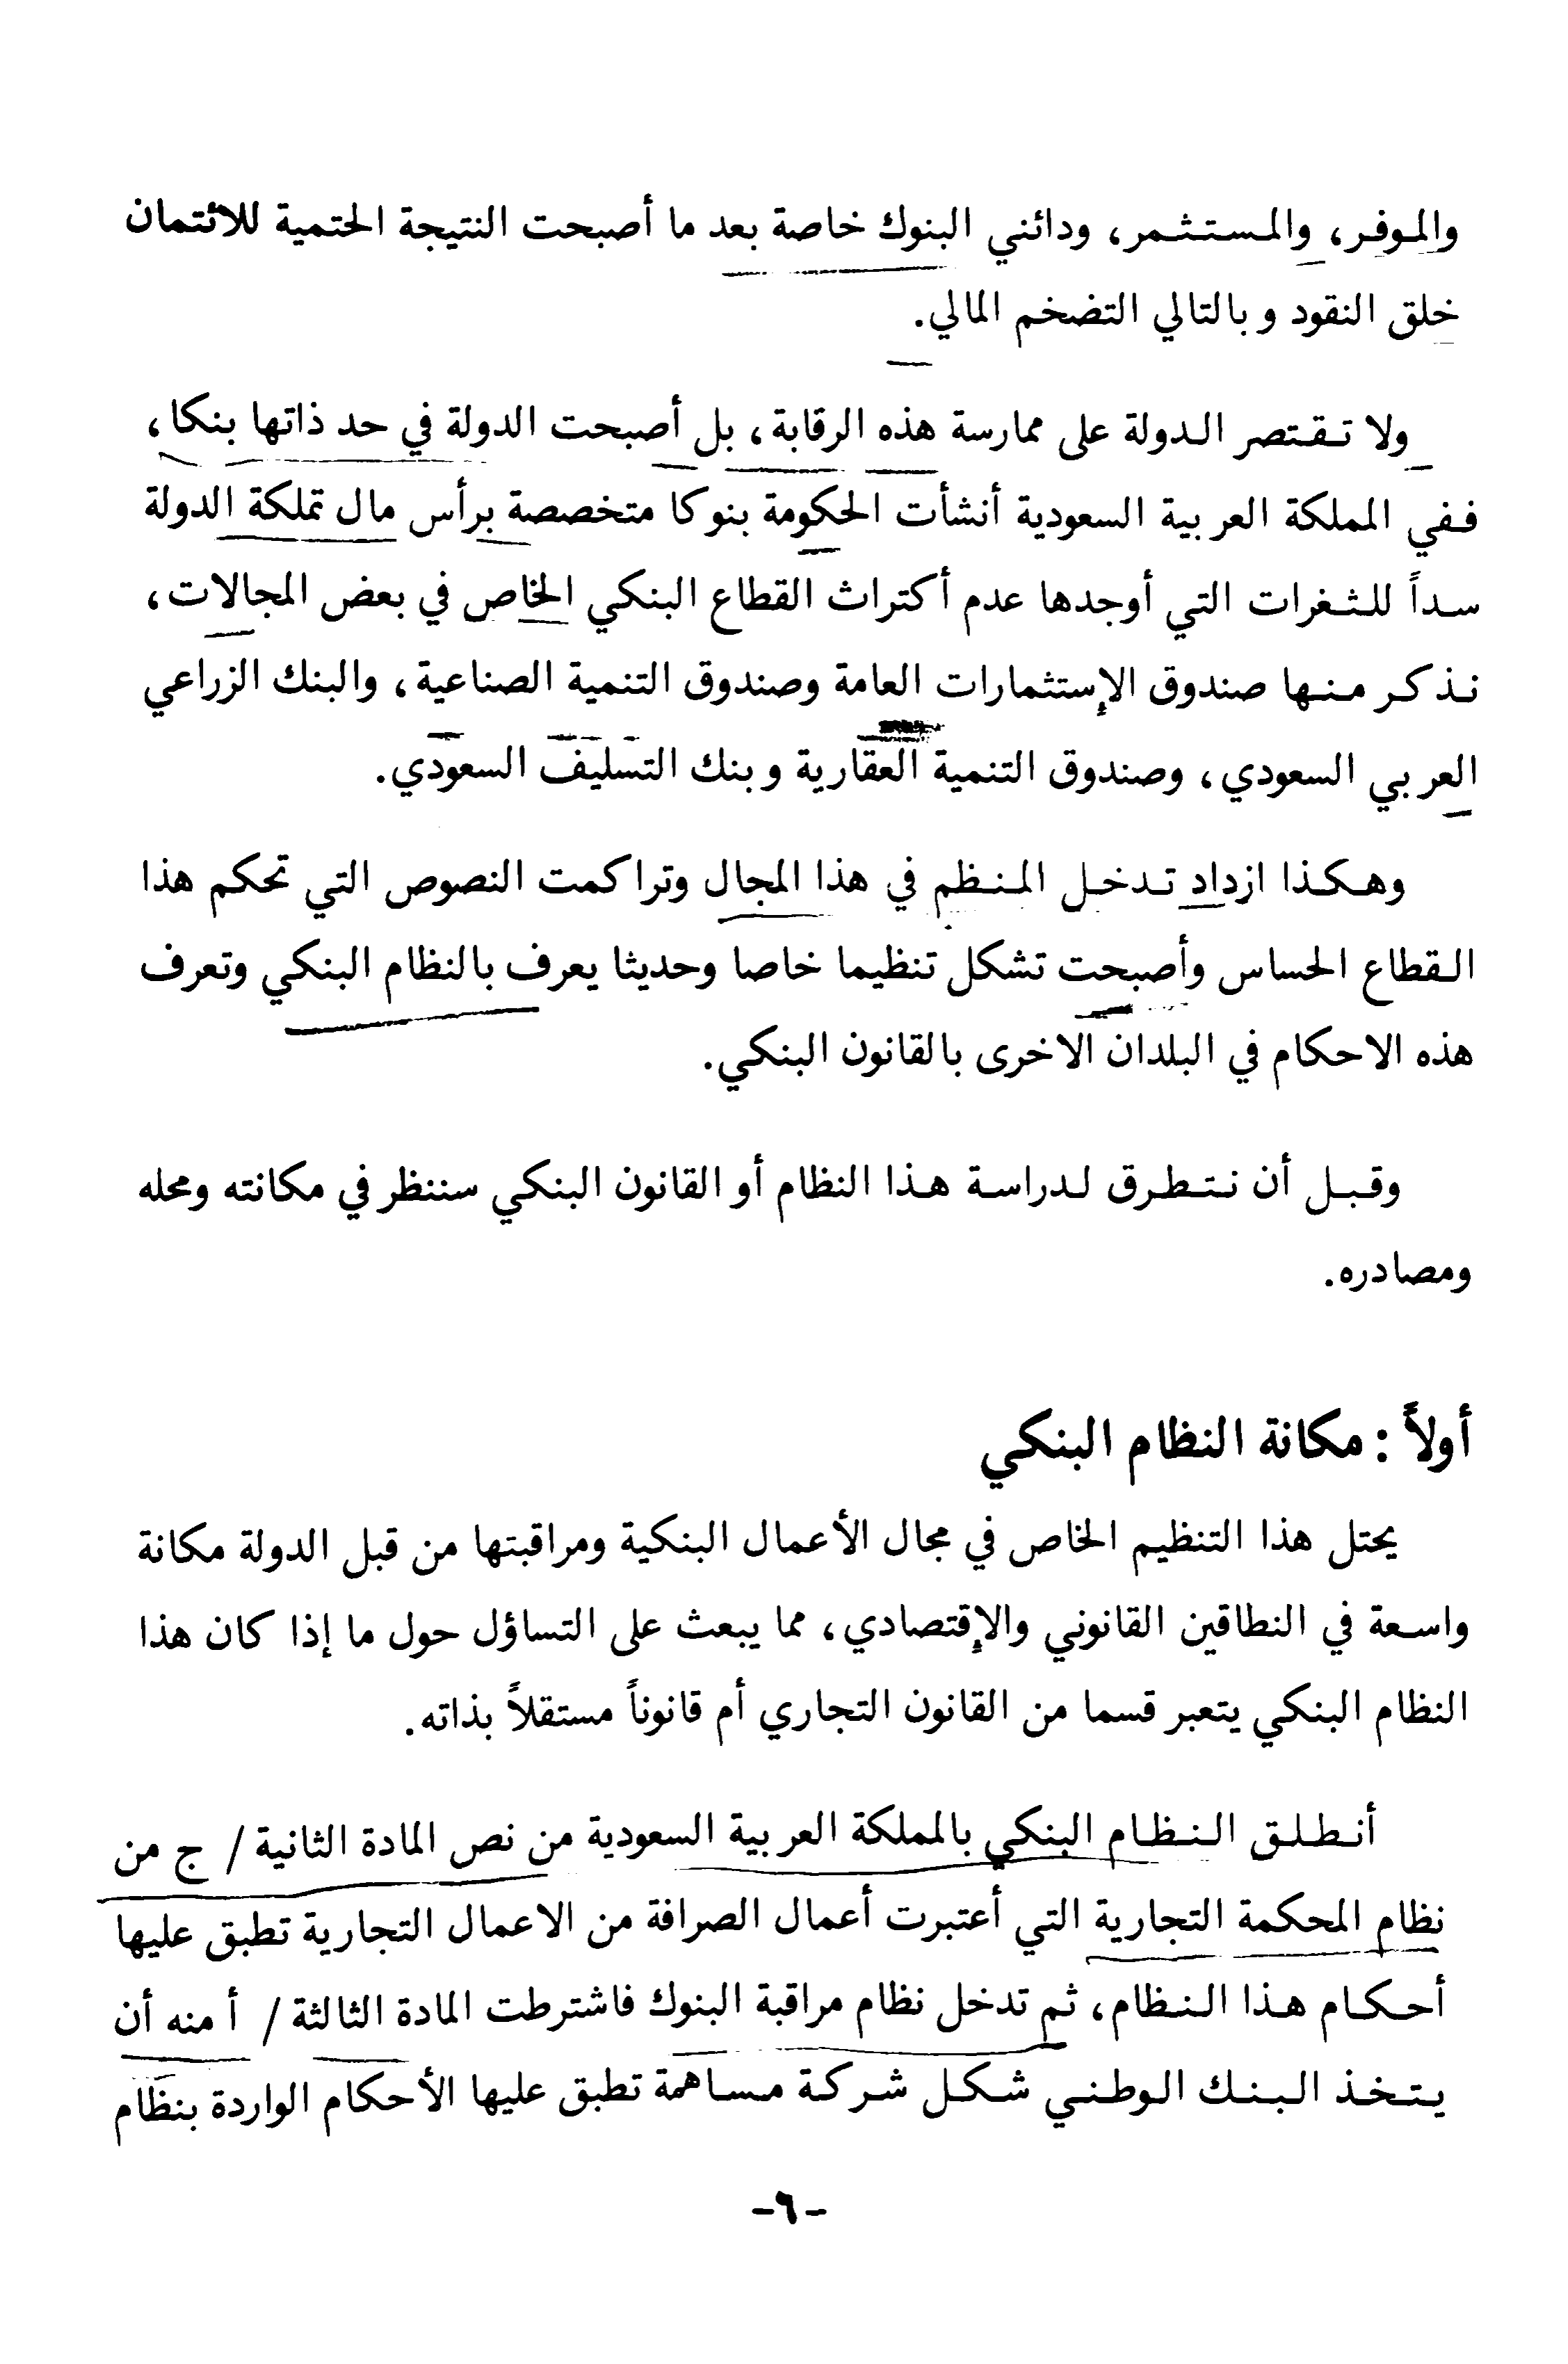 والموفر، والمستثمر، ودائني البنوك خاصة بعد ما أصبحت النتيجة الحتمية للائتمان
خلق النقود وبالتالي التضخم المالي.
ولا تقتصر الدولة على ممارسة هذه الرقابة، بل أصبحت الدولة في حد ذاتها بنكا،
ففي المملكة العربية السعودية أنشأت الحكومة بنوكا متخصصة برأس مال تملكة الدولة
سداً للثغرات التي أوجدها عدم أكتراث القطاع البنكي الخاص في بعض المجالات،
نذكر منها صندوق الإستثمارات العامة وصندوق التنمية الصناعية، والبنك الزراعي
العربي السعودي، وصندوق التنمية العقارية وبنك التسليف السعودي.
وهكذا ازداد تدخل المنظم في هذا المجال وتراكمت النصوص التي تحكم هذا
القطاع الحساس وأصبحت تشكل تنظيما خاصا وحديثا يعرف بالنظام البنكي وتعرف
هذه الاحكام في البلدان الاخرى بالقانون البنكي.
وقبل أن نتطرق لدراسة هذا النظام أو القانون البنكي سننظر في مكانته ومحله
ومصادره.
أولاً : مكانة النظام البنكي
يحتل هذا التنظيم الخاص في مجال الأعمال البنكية ومراقبتها من قبل الدولة مكانة
واسعة في النطاقين القانوني والإقتصادي، مما يبعث على التساؤل حول ما إذا كان هذا
النظام البنكي يتعبر قسما من القانون التجاري أم قانوناً مستقلاً بذاته.
أنطلق النظام البنكي بالمملكة العربية السعودية من نص المادة الثانية / ج من
نظام المحكمة التجارية التي أعتبرت أعمال الصرافة من الاعمال التجارية تطبق عليها
أحكام هذا النظام، ثم تدخل نظام مراقبة البنوك فاشترطت المادة الثالثة / أ منه أن
يتخذ البنك الوطني شكل شركة مساهمة تطبق عليها الأحكام الواردة بنظام
-٦-